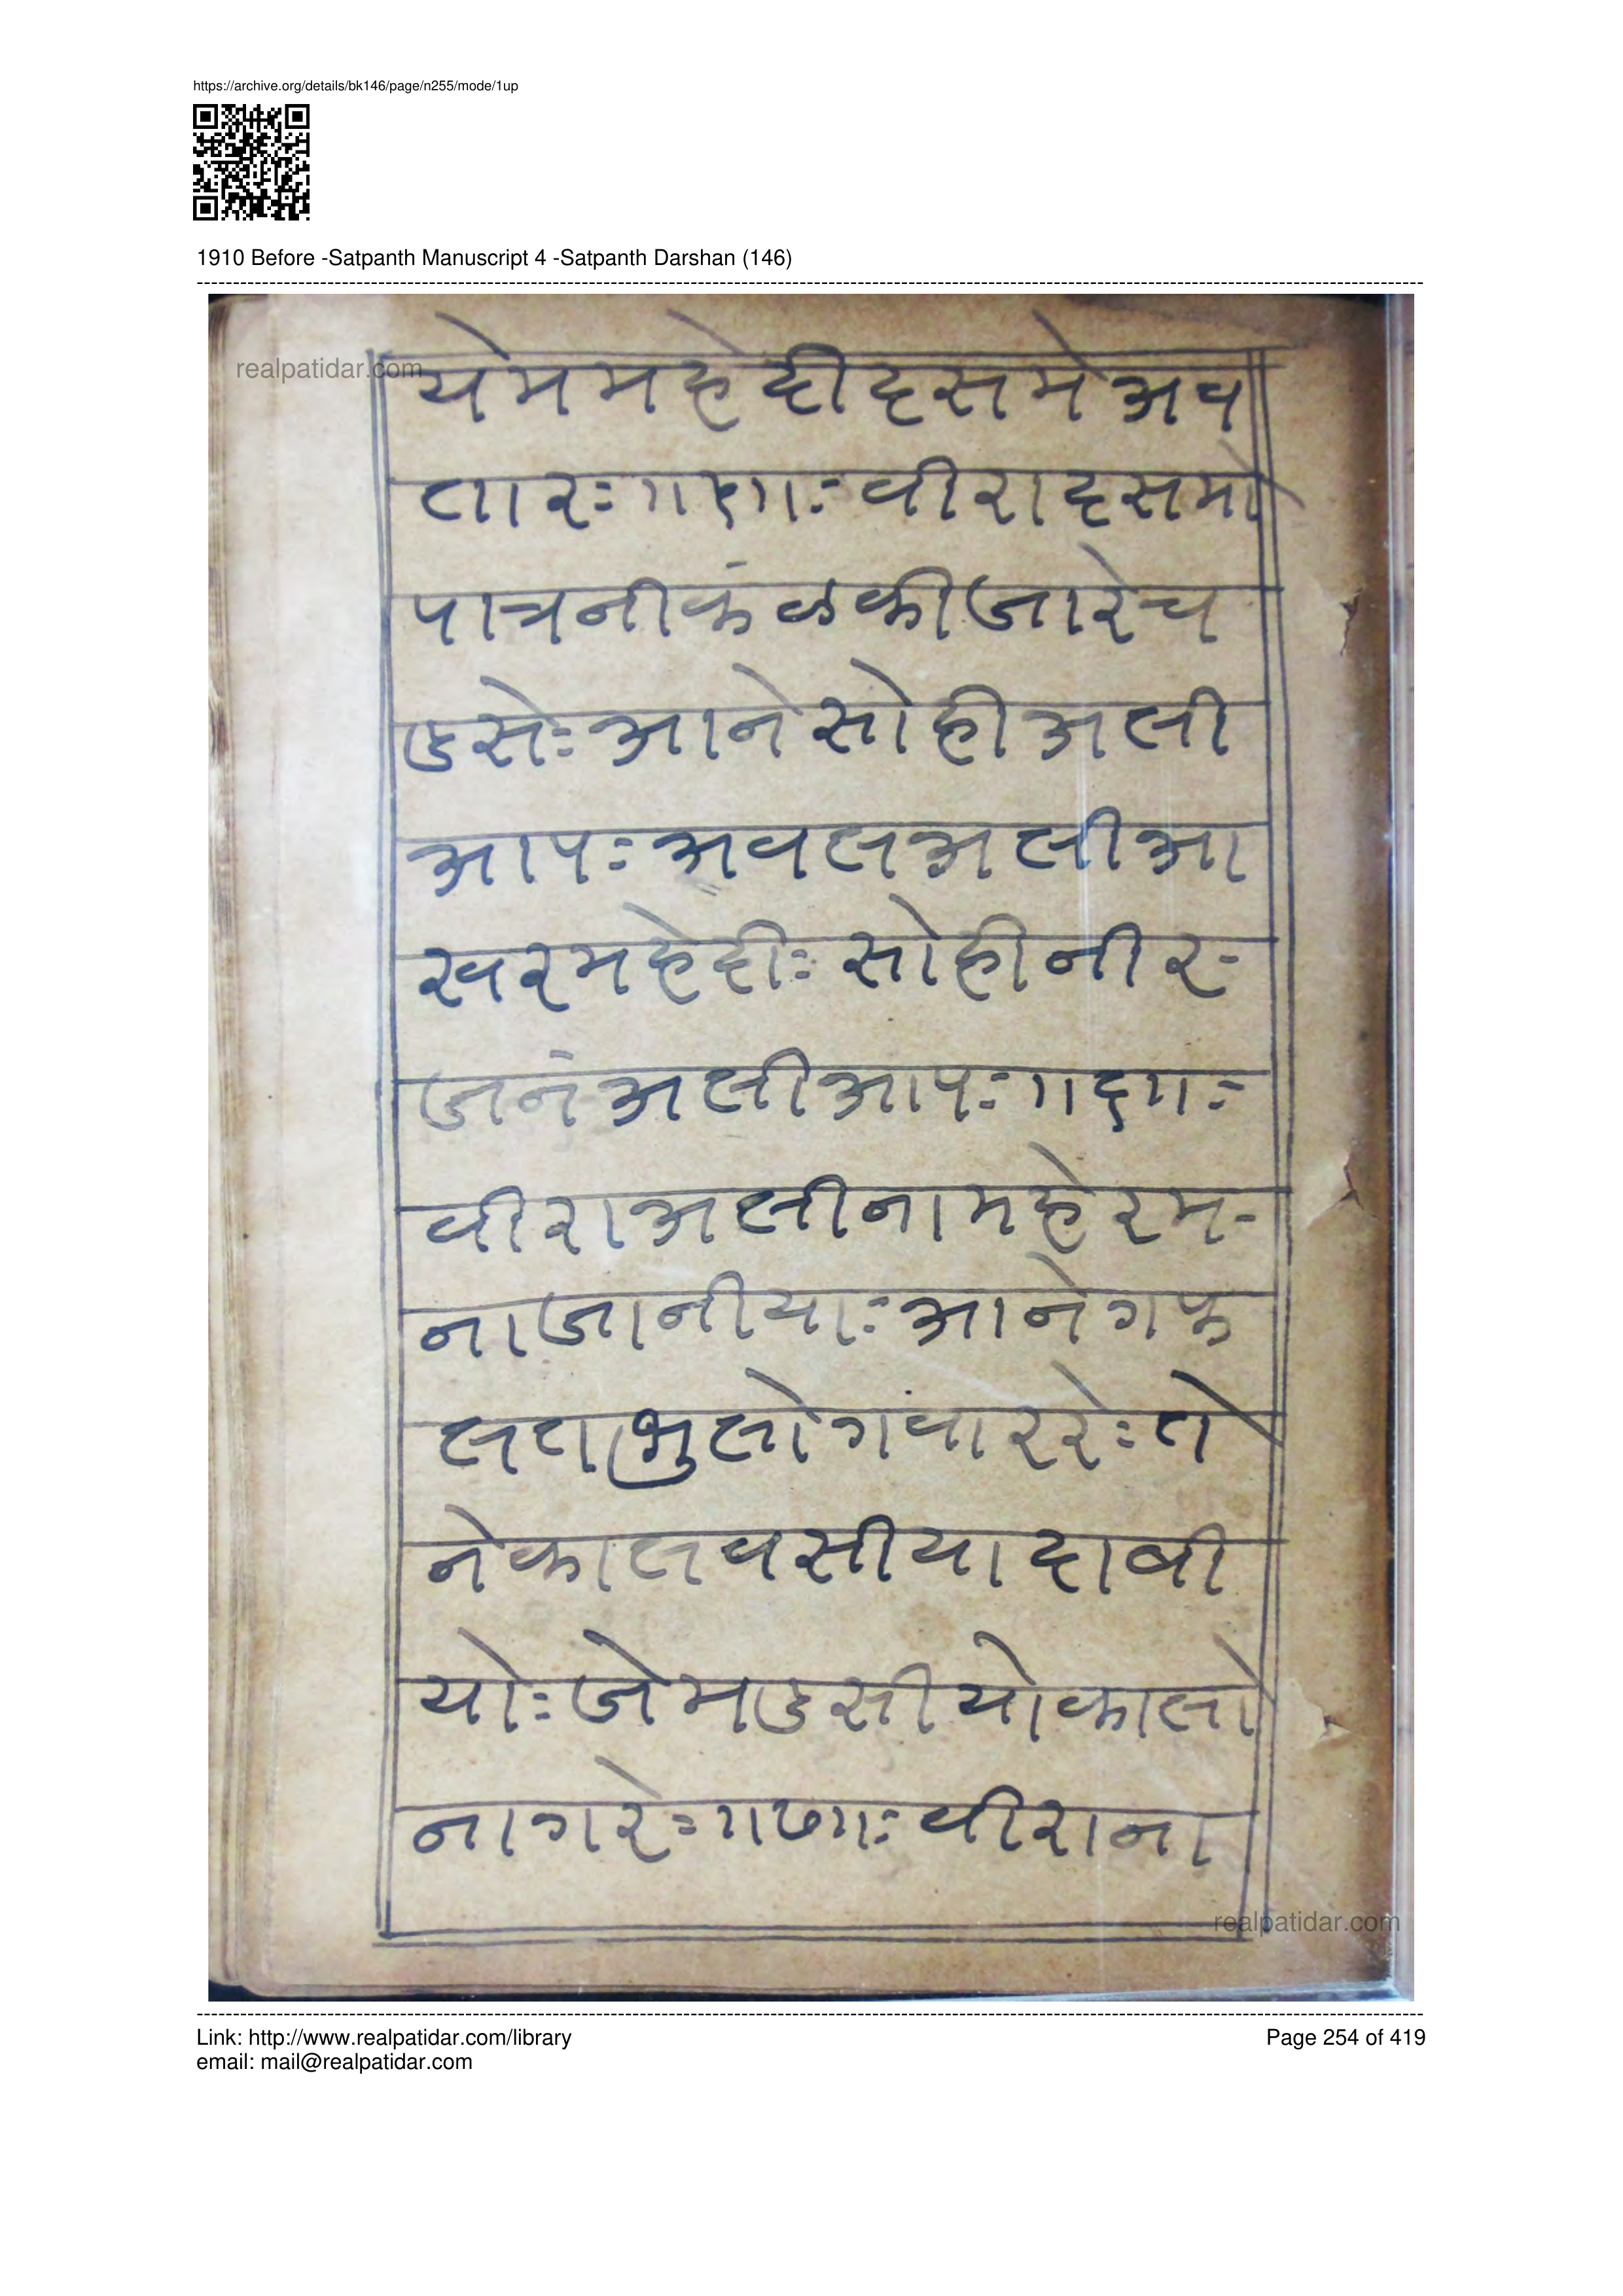 https://archive.org/details/bk146/page/n255/mode/1up
1910 Before -Satpanth Manuscript 4 -Satpanth Darshan (146)
realpatidar.com
येममहेदीदसमेअव
तारः॥५॥ः वीरादसमो
पात्रनीकंळकीजारेच
डसेः आनेसोहीअली
आपः अवलअलीआ
खरमहेदीः सोहीनीर-
जनंअलीआपः॥६॥ः
वीराअलीनामहेरम-
नाजानीयाः आनेगफ
लतभुलोगंवाररेः ते
नेकालवसीयादावी
योः जेमडसीयोकालो
नागरेः॥७॥ः वीराना
realpatidar.com
Link: http://www.realpatidar.com/library
Page 254 of 419
email: mail@realpatidar.com